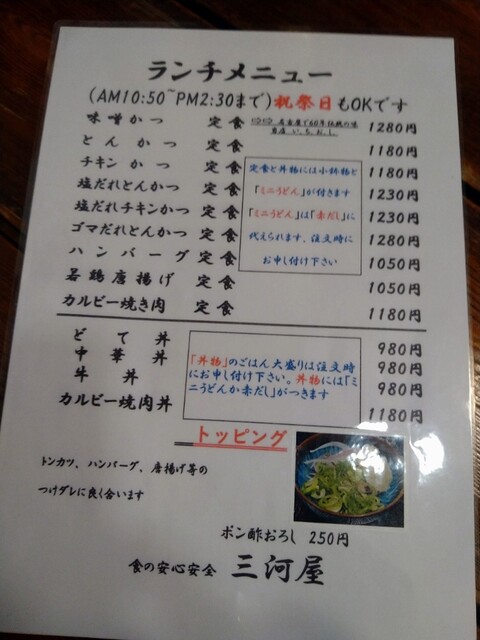 ランチメニュー
(AM10:50~PM2:30まで)祝祭日もOKです
味噌かつ 定食 ⇨⇨ 名古屋で60年伝統の味 1280円
当店 い、ち、お、し、
とんかつ 定食 1180円
チキンかつ 定食 1180円
塩だれとんかつ 定食 1230円
塩だれチキンかつ 定食 1230円
ゴマだれとんかつ 定食 1280円
ハンバーグ 定食 1050円
若鶏唐揚げ 定食 1050円
カルビー焼き肉 定食 1180円
定食と丼物には小鉢物と
「ミニうどん」が付きます
「ミニうどん」は「赤だし」に
代えられます、注文時に
お申し付け下さい
どて丼 980円
中華丼 980円
牛丼 980円
カルビー焼肉丼 1180円
「丼物」のごはん大盛りは注文時
にお申し付け下さい。丼物には「ミ
ニうどんか赤だし」がつきます
トッピング
トンカツ、ハンバーグ、唐揚げ等の
つけダレに良く合います
ポン酢おろし 250円
食の安心安全 三河屋